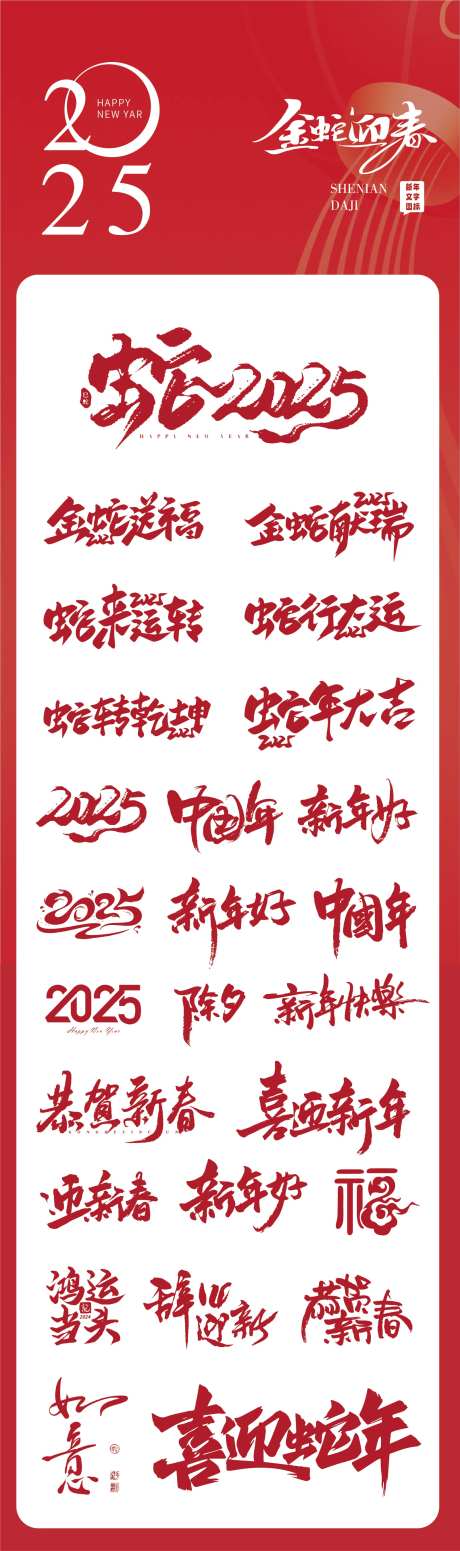 2025
HAPPY
NEW YAR
金蛇迎春
SHENIAN
DAJI
新年
文字
图标
蛇2025
HAPPY NEO YEAR
金蛇送福
2025
金蛇献瑞
2025
蛇来运转
2025
蛇行大运
2025
蛇转乾坤
2025
蛇年大吉
2025
2025
中國年
新年好
2025
新年好
中國年
2025
Happy New Year
除夕
新年快樂
恭賀新春
喜迎新年
迎新春
新年好
福
鸿运
当头
2024
辞旧迎新
恭贺
新春
如意
喜迎蛇年